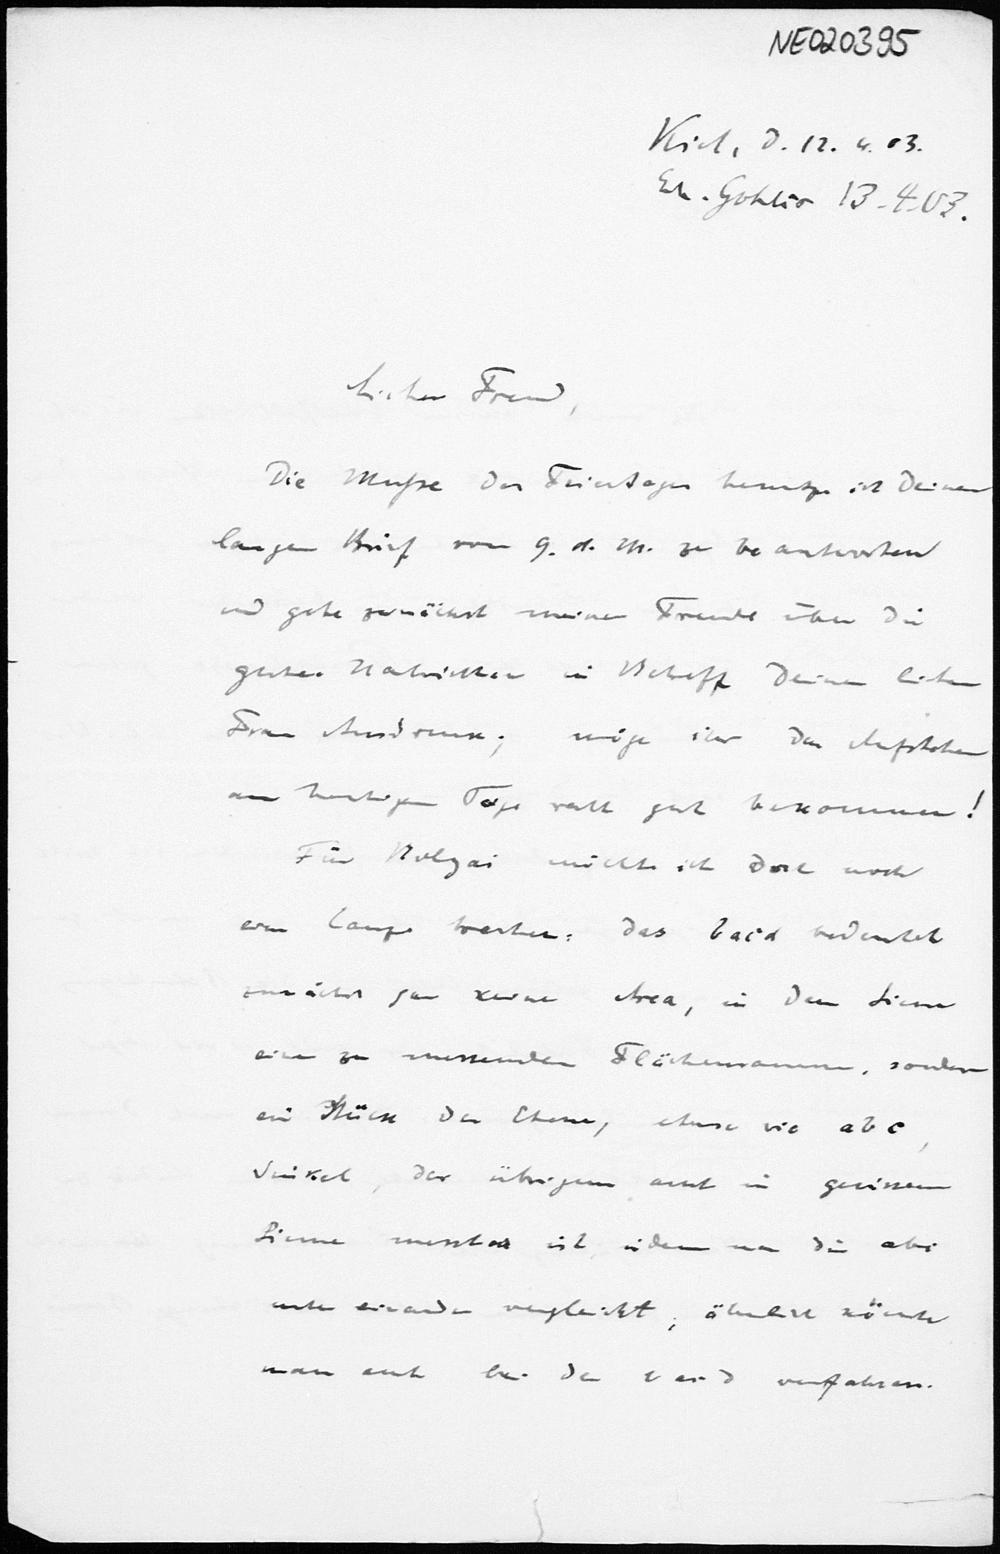 NE020395
Kiel, d. 12. 4. 03.
13-4-03.
Lieber Freund,
Die Muße des Feiertages benutze ich Deinen
langen Brief vom 9. d. M. zu beantworten
und gebe zunächst meiner Freude über die
guten Nachrichten in Betreff Deiner lieben
Frau Ausdruck; möge ihr das Aufstehen
am heutigen Tage recht gut bekommen!
Für Bolyai möchte ich doch noch
eine Lanze brechen: das bacd bedeutet
zunächst gar keine Area, in dem Sinne
einer zu messenden Flächenraumes, sondern
ein Stück der Ebene, ebenso wie abc,
Winkel, der übrigens auch in gewissem
Sinne messbar ist, indem man die abc
unter einander vergleicht; ähnlich könnte
man auch bei den verfahren.